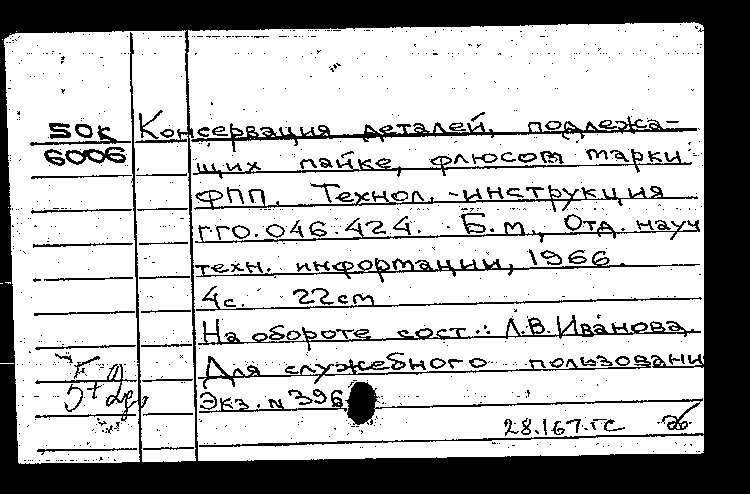 50к Консервация деталей, подлежа-
6006 щих пайке, флюсом марки
ФПП. Технол. -инструкция
ГГО.046.424. Б.м., Отд. науч
техн. информации, 1966.
4с. 22см
На обороте сост.: Л.В.Иванова.
Для служебного пользовани
Экз. N 396
28.167.ГС